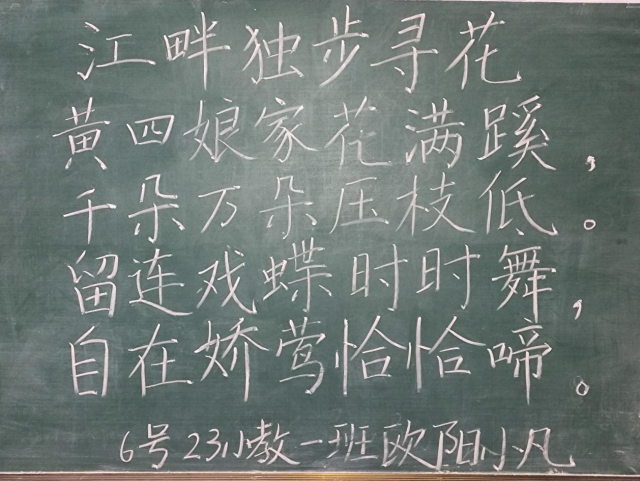 江畔独步寻花
黄四娘家花满蹊，
千朵万朵压枝低。
留连戏蝶时时舞，
自在娇莺恰恰啼。
6号23小教一班欧阳小凡